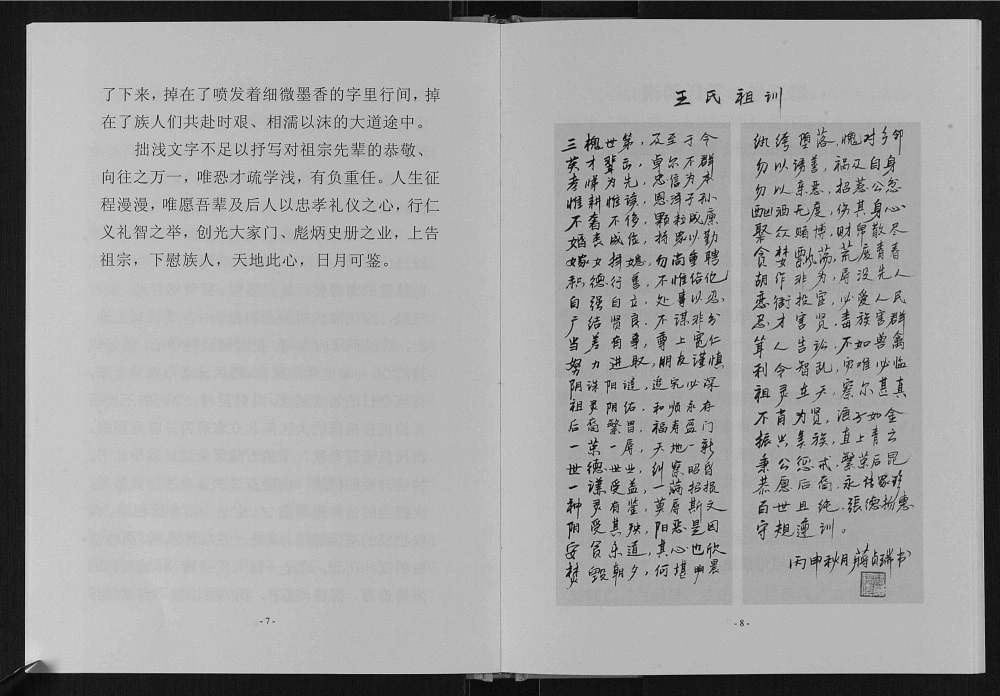 了下来，掉在了喷发着细微墨香的字里行间，掉
在了族人们共赴时艰、相濡以沫的大道途中。
拙浅文字不足以抒写对祖宗先辈的恭敬、
向往之万一，唯恐才疏学浅，有负重任。人生征
程漫漫，唯愿吾辈及后人以忠孝礼仪之心，行仁
义礼智之举，创光大家门、彪炳史册之业，上告
祖宗，下慰族人，天地此心，日月可鉴。
- 7 -
王氏祖训
三槐世第，及至于今
英才辈出，卓尔不群
孝悌为先，忠信为本
惟耕惟读，恩泽子孙
不奢不侈，颗粒成廉
婚丧成俭，持家以勤
嫁女择媳，勿尚重聘
积德行善，不惟佑他
自强自立，处事以忍
广结贤良，不谋非分
当差有事，尊上宽仁
努力进取，朋友谨慎
阴诛阳谴，追究必深
祖灵阴佑，和顺永存
后裔繁昌，福寿盈门
一荣一辱，天地一新
世德世业，纠察昭昏
一谦受益，一满招损
神灵有鉴，莫辱斯文
阴受其殃，阳恶是因
安贫乐道，其心也欣
焚毁朝夕，何堪
纨绔堕落，愧对乡邻
勿以诱善，祸及自身
勿以亲恶，招惹公忿
酗酒无度，伤其身心
聚众赌博，财帛散尽
贪婪飘荡，荒废青春
胡作非为，辱没先人
恋衙投官，必爱人民
忌才害贤，毒族害群
耸人告讼，不如兽禽
利令智乱，灾难必临
祖灵在天，察尔甚真
不肖为贤，浪子如金
振兴美族，直上青云
秉公惩戒，繁荣后昆
恭愿后裔，永传家珍
百世且纯，張德扬惠
守规遵训。
丙申秋月蒋贞瑞书
- 8 -